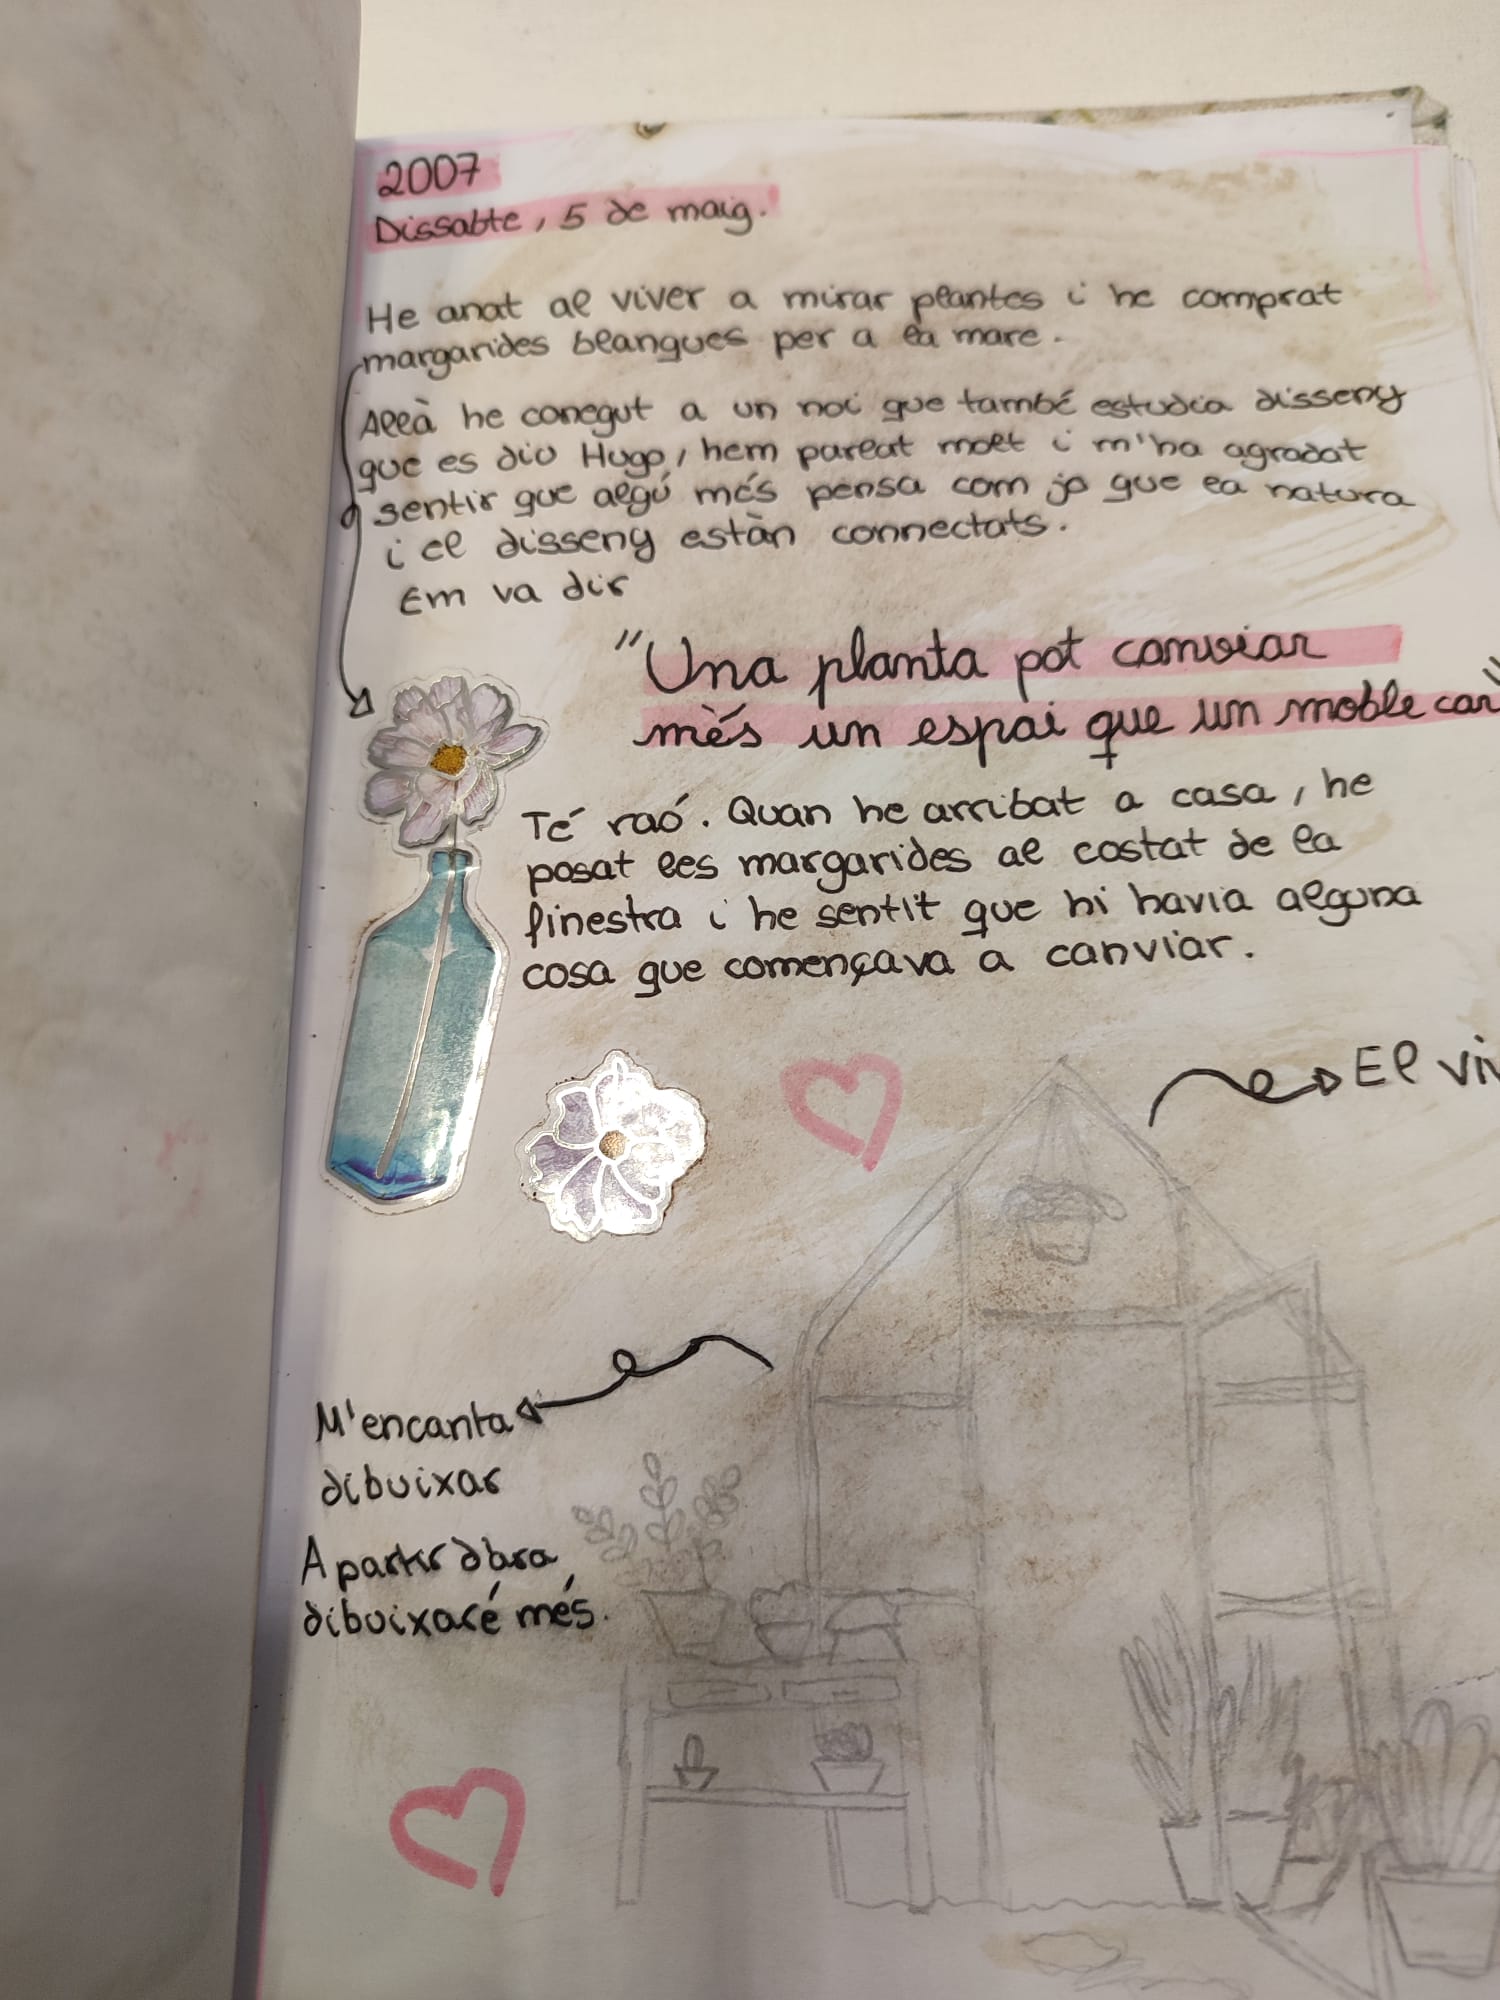 2007
Dissabte, 5 de maig.
He anat al viver a mirar plantes i he comprat
margarides blanques per a la mare.
Allà he conegut a un noi que també estudia disseny
que es diu Hugo, hem parlat molt i m'ha agradat
sentir que algú més pensa com jo que la natura
i el disseny estàn connectats.
Em va dir
"Una planta pot canviar
més un espai que un moble car"
Té raó. Quan he arribat a casa, he
posat les margarides al costat de la
finestra i he sentit que hi havia alguna
cosa que començava a canviar.
El
M'encanta
dibuixar
A partir d'ara
dibuixaré més.